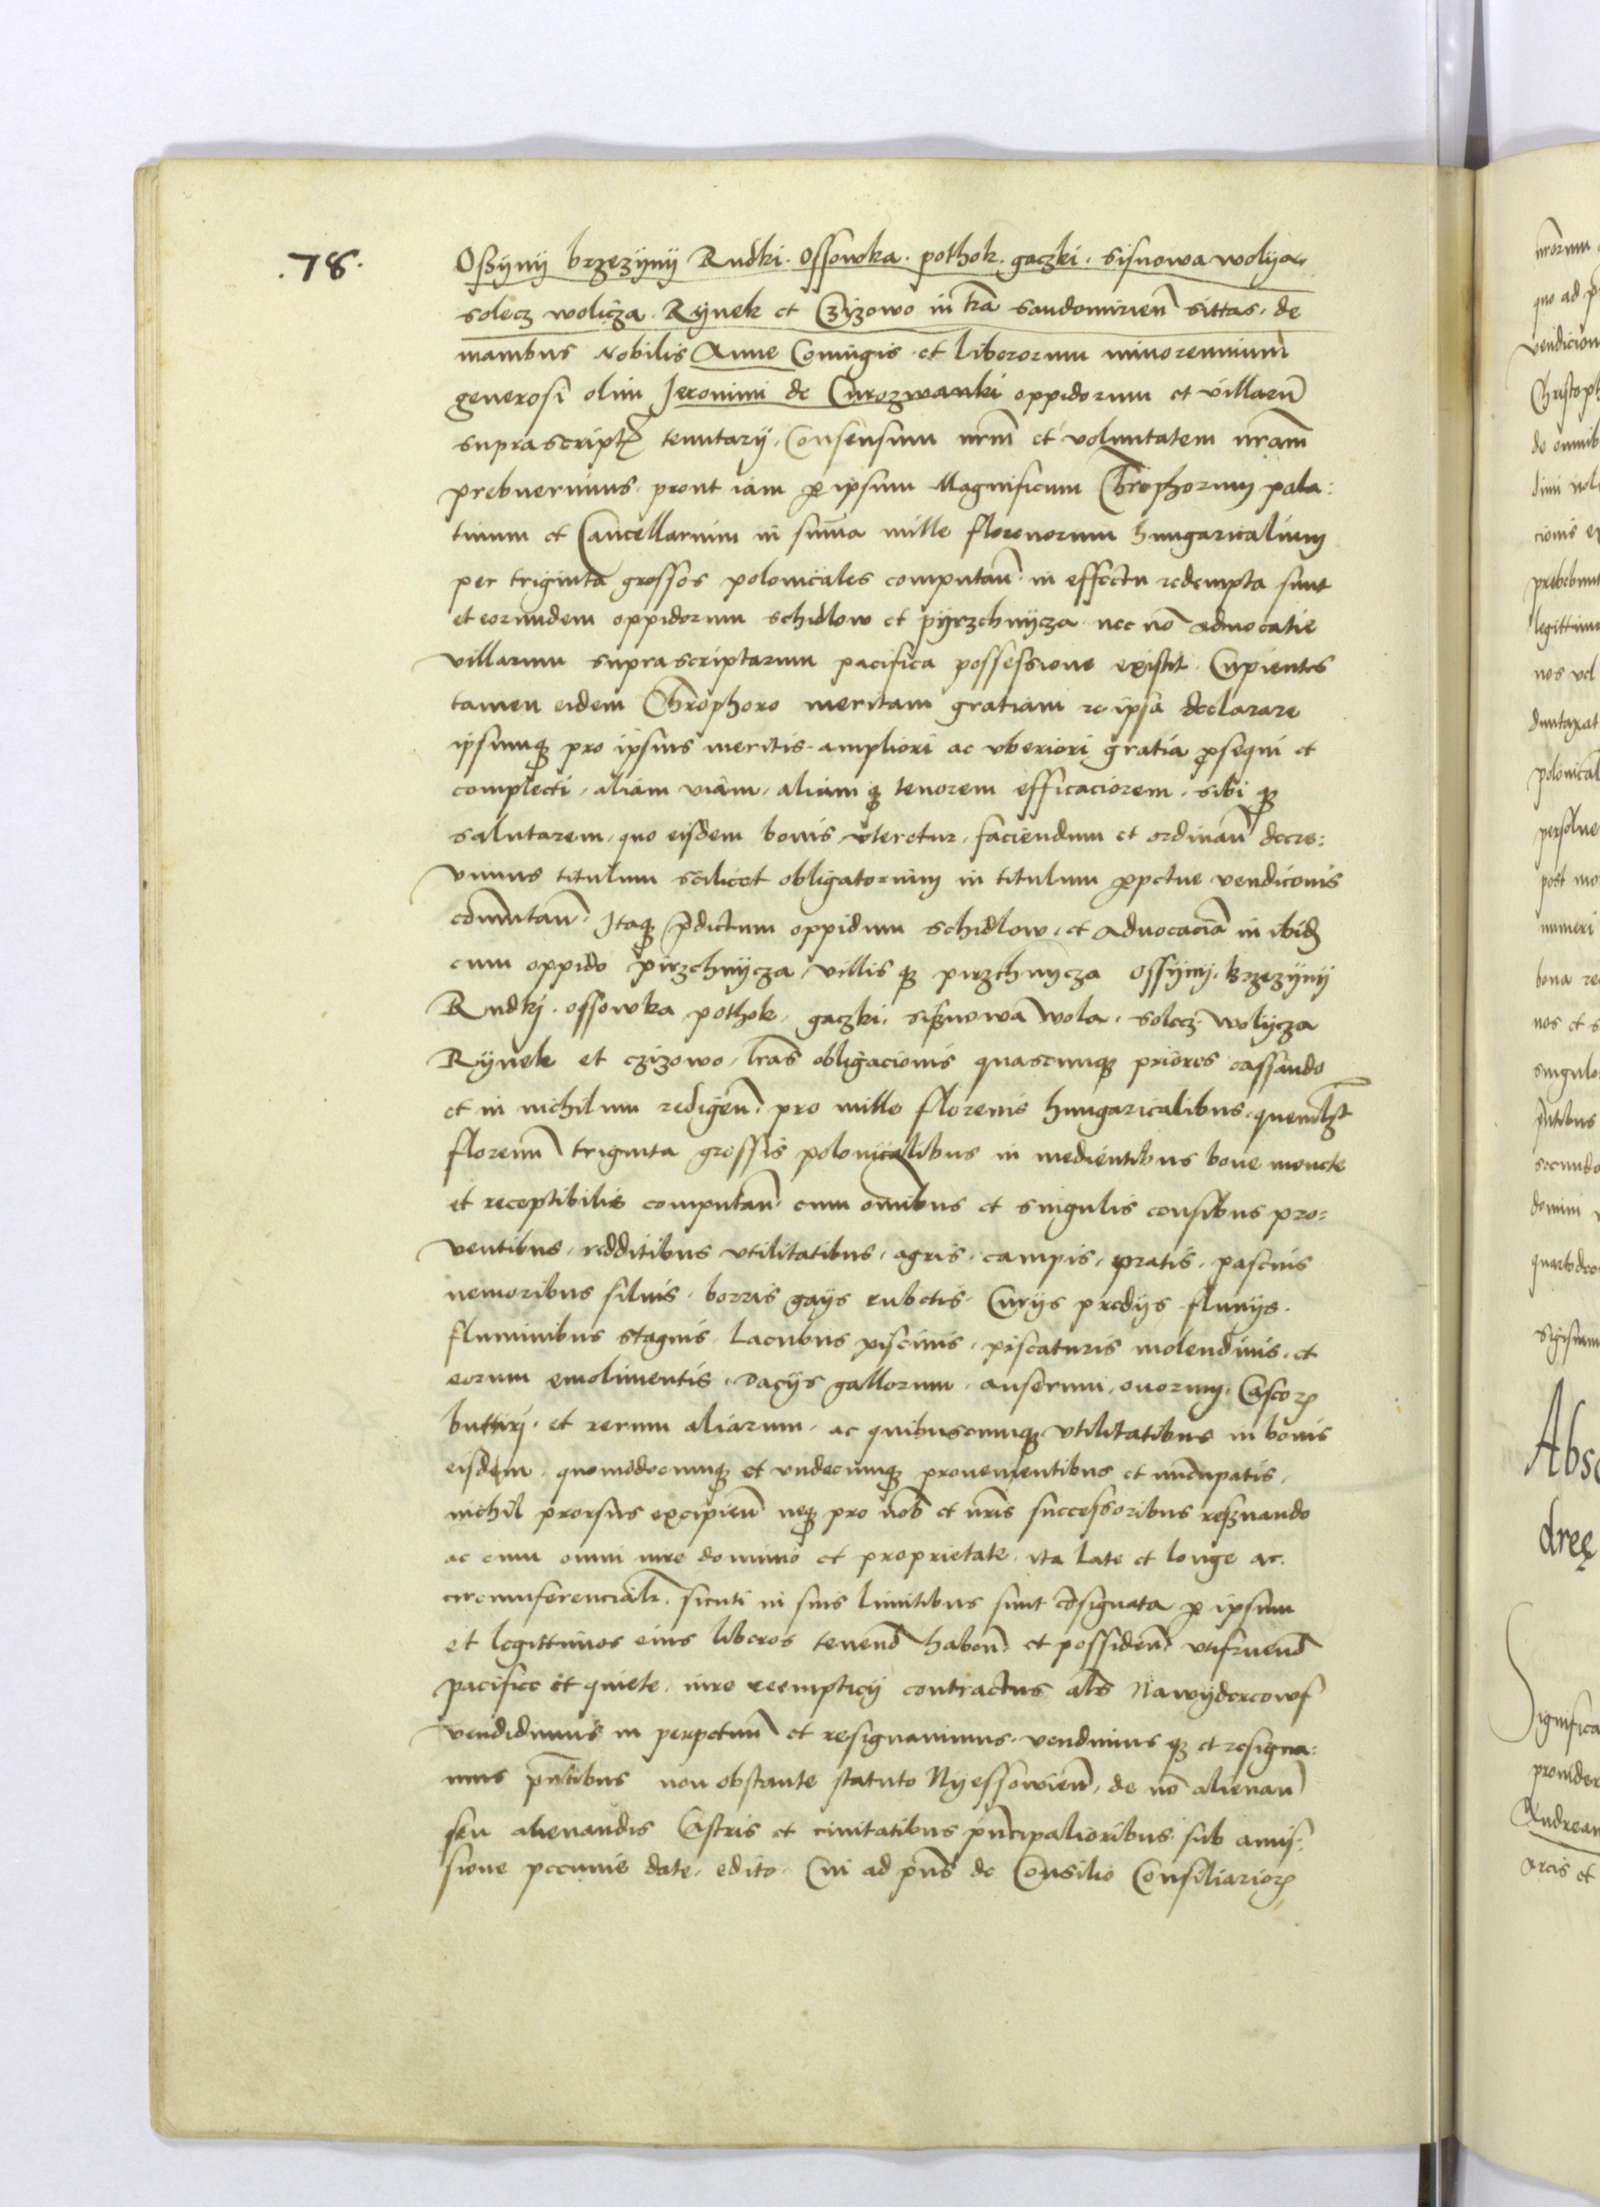 .78.
Oszyny brzezyny Rudki. Ossowka. pothok. gaczki. sisnowa wolya
solecz wolicza. Rynek et Czizowo in tra sandomirien sittas. de
manibus Nobilis Anne Coniugis et liberorum minorennium
generosi olim Jeronimi de Curozwanki oppidorum et villarum
suprascript tenutarij, Consensum nrm et voluntatem nram
prebuerimus. prout iam p ipsum Magnificum Chrophorum pala:
tinum et Cancellarium in suma mille florenorum hungaricalium
per triginta grossos polonicales computan. in effectu redempta sunt
et eorundem oppidorum schidlow et pyrzchnycza nec no aduocatie
villarum suprascriptarum pacifica possessione existit. Cupientes
tamen eidem Chrophoro meritam gratiam re ipsa declarare
ipsumq pro ipsius meritis. ampliori ac vberiori gratia psequi et
complecti. aliam viam. aliam q tenorem efficaciorem. sibi q
salutarem. quo eisdem bonis vteretur. faciendum et ordinan decre:
uimus titulum scilicet obligatorium in titulum ppetue vendicionis
comutan. Itaq pdictum oppidum schidlow. et aduocacia in ibid
cum oppido pirzchnycza villis q pirzchnycza ossyny. brzezyny
Rudky. ossowka pothok. gaczki. sisznowa wola. solecz. wolycza
Rynek et czizowo. lras obligacionis quascunq priores cassando
et in nichilum redigen. pro mille florenis hungaricalibus. quemlzt
florenu triginta grossis polonicalibus in medientibus bone monete
et receptibilis computan. cum omnibus et singulis censibus pro:
uentibus. redditibus vtilitatibus. agris. campis. pratis. pascuis
nemoribus siluis. borris gays rubetis. Curijs predijs fluuijs.
fluminibus stagnis. lacubus piscinis. piscaturis molendinis. et
eorum emolimentis. dacijs gallorum. anserum. ouorum. Caseor
buttiri. et rerum aliarum. ac quibuscunq vtilitatibus in bonis
eisdem. quomodocunq et vndecunq prouenientibus et nuncupatis.
nichil prorsus excipien neq pro nob et nris successoribus reseruando
ac cum omni iure dominio et proprietate. ita late et longe ac.
circumferencialr. sicuti in suis limitibus sunt cosignata p ipsum
et legittimos eius liberos tenend haben. et possiden. vtifruend
pacifice et quiete. iure reempticij contractus als Nawydercowf
vendidimus in perpetuu et resignauimus. vendimus q et resigna:
mus pntibus non obstante statuto Nyessowien. de no alienan
seu alienandis Castris et ciuitatibus pncipalioribus. sub amis:
sione pecunie date. edito. Cui ad pns de Consilio Consiliarior